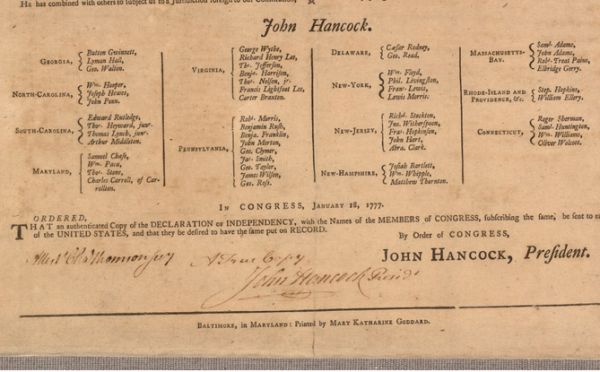 He has combined with others to subject us to a Jurisdiction foreign to our Constitution,
John Hancock.
GEORGIA, { Button Gwinnett,
Lyman Hall,
Geo. Walton.
NORTH-CAROLINA, { Wm. Hooper,
Joseph Hewes,
John Penn.
SOUTH-CAROLINA, { Edward Rutledge,
Thos. Heyward, junr.
Thomas Lynch, junr.
Arthur Middleton.
MARYLAND, { Samuel Chase,
Wm. Paca,
Thos. Stone,
Charles Carroll, of Car-
rollton.
VIRGINIA, { George Wythe,
Richard Henry Lee,
Ths. Jefferson,
Benja. Harrison,
Thos. Nelson, jr.
Francis Lightfoot Lee,
Carter Braxton.
PENNSYLVANIA, { Robt. Morris,
Benjamin Rush,
Benja. Franklin,
John Morton,
Geo. Clymer,
Jas. Smith,
Geo. Taylor,
James Wilson,
Geo. Ross.
DELAWARE, { Cæsar Rodney,
Geo. Read.
NEW-YORK, { Wm. Floyd,
Phil. Livingston,
Frans. Lewis,
Lewis Morris.
NEW-JERSEY, { Richd. Stockton,
Jno. Witherspoon,
Fras. Hopkinson,
John Hart,
Abra. Clark.
NEW-HAMPSHIRE, { Josiah Bartlett,
Wm. Whipple,
Matthew Thornton.
MASSACHUSETTS-
BAY. { Saml. Adams,
John Adams,
Robt. Treat Paine,
Elbridge Gerry.
RHODE-ISLAND AND
PROVIDENCE, &c. { Step. Hopkins,
William Ellery.
CONNECTICUT, { Roger Sherman,
Saml. Huntington,
Wm. Williams,
Oliver Wolcott.
IN CONGRESS, JANUARY 18, 1777.
ORDERED,
THAT an authenticated Copy of the DECLARATION OF INDEPENDENCY, with the Names of the MEMBERS of CONGRESS, subscribing the same, be sent to
of the UNITED STATES, and that they be desired to have the same put on RECORD.
By Order of CONGRESS,
JOHN HANCOCK, President.
Attest Chas Thomson secy A True Copy
John Hancock Presidt
BALTIMORE, in MARYLAND: Printed by MARY KATHARINE GODDARD.